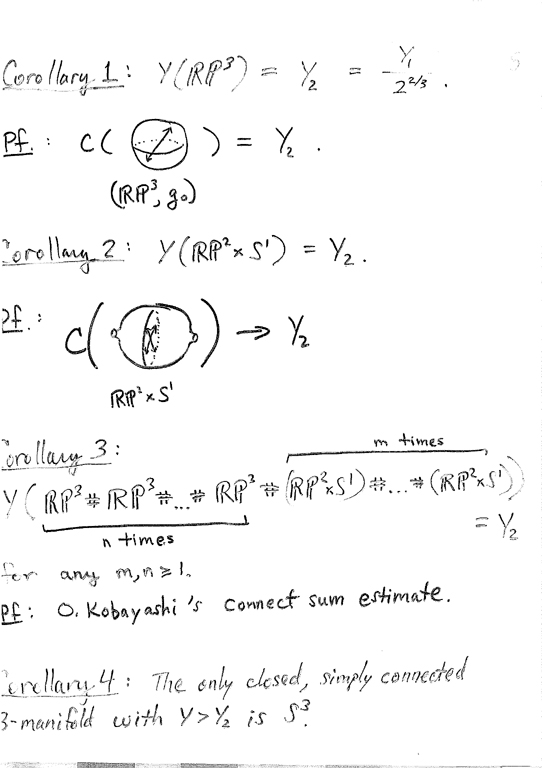 Corollary 1: Y(RP³) = Y₂ = Y₁/2^{2/3}.
Pf.: C( ) = Y₂.
(RP³, g₀)
Corollary 2: Y(RP² × S¹) = Y₂.
Pf.: C( ) → Y₂
RP² × S¹
Corollary 3:
m times
Y(RP³ # RP³ # ... # RP³ # (RP² × S¹) # ... # (RP² × S¹))
n times
= Y₂
for any m, n ≥ 1.
Pf: O. Kobayashi's connect sum estimate.
Corollary 4: The only closed, simply connected
3-manifold with Y > Y₂ is S³.